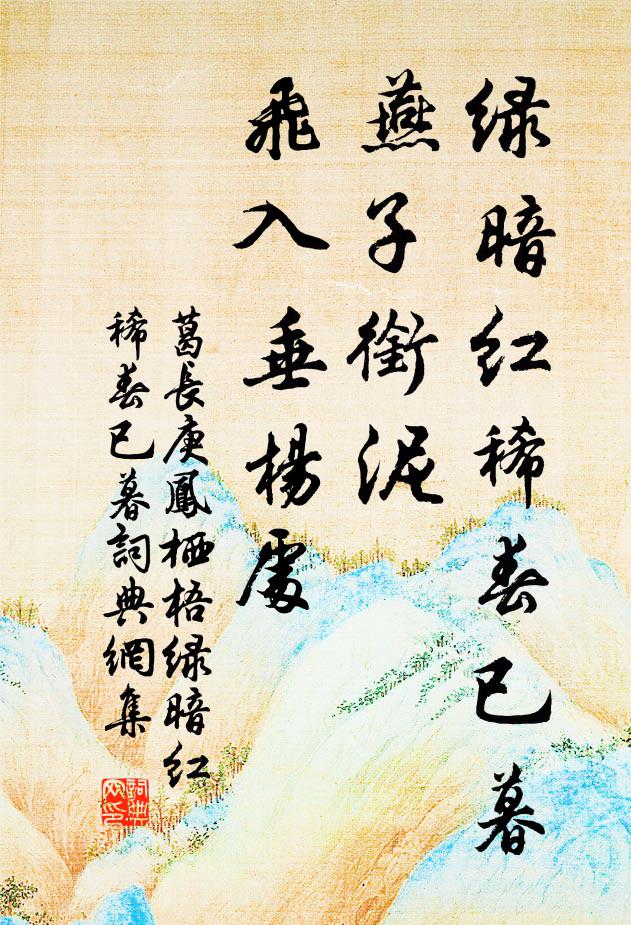 绿暗红稀春已暮
燕子衔泥
飞入垂杨处
葛長庚鳳栖梧绿暗红
稀春已暮詞典網集
詞典網印